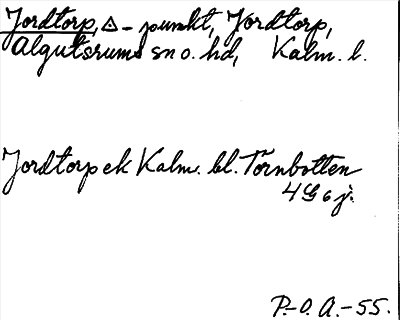 Jordtorp, △-punkt, Jordtorp,
Algutsrums sn o. hd, Kalm. l.
Jordtorp ek Kalm. bl. Törnbotten
4 G 6 j.
P.-O. A. -55.